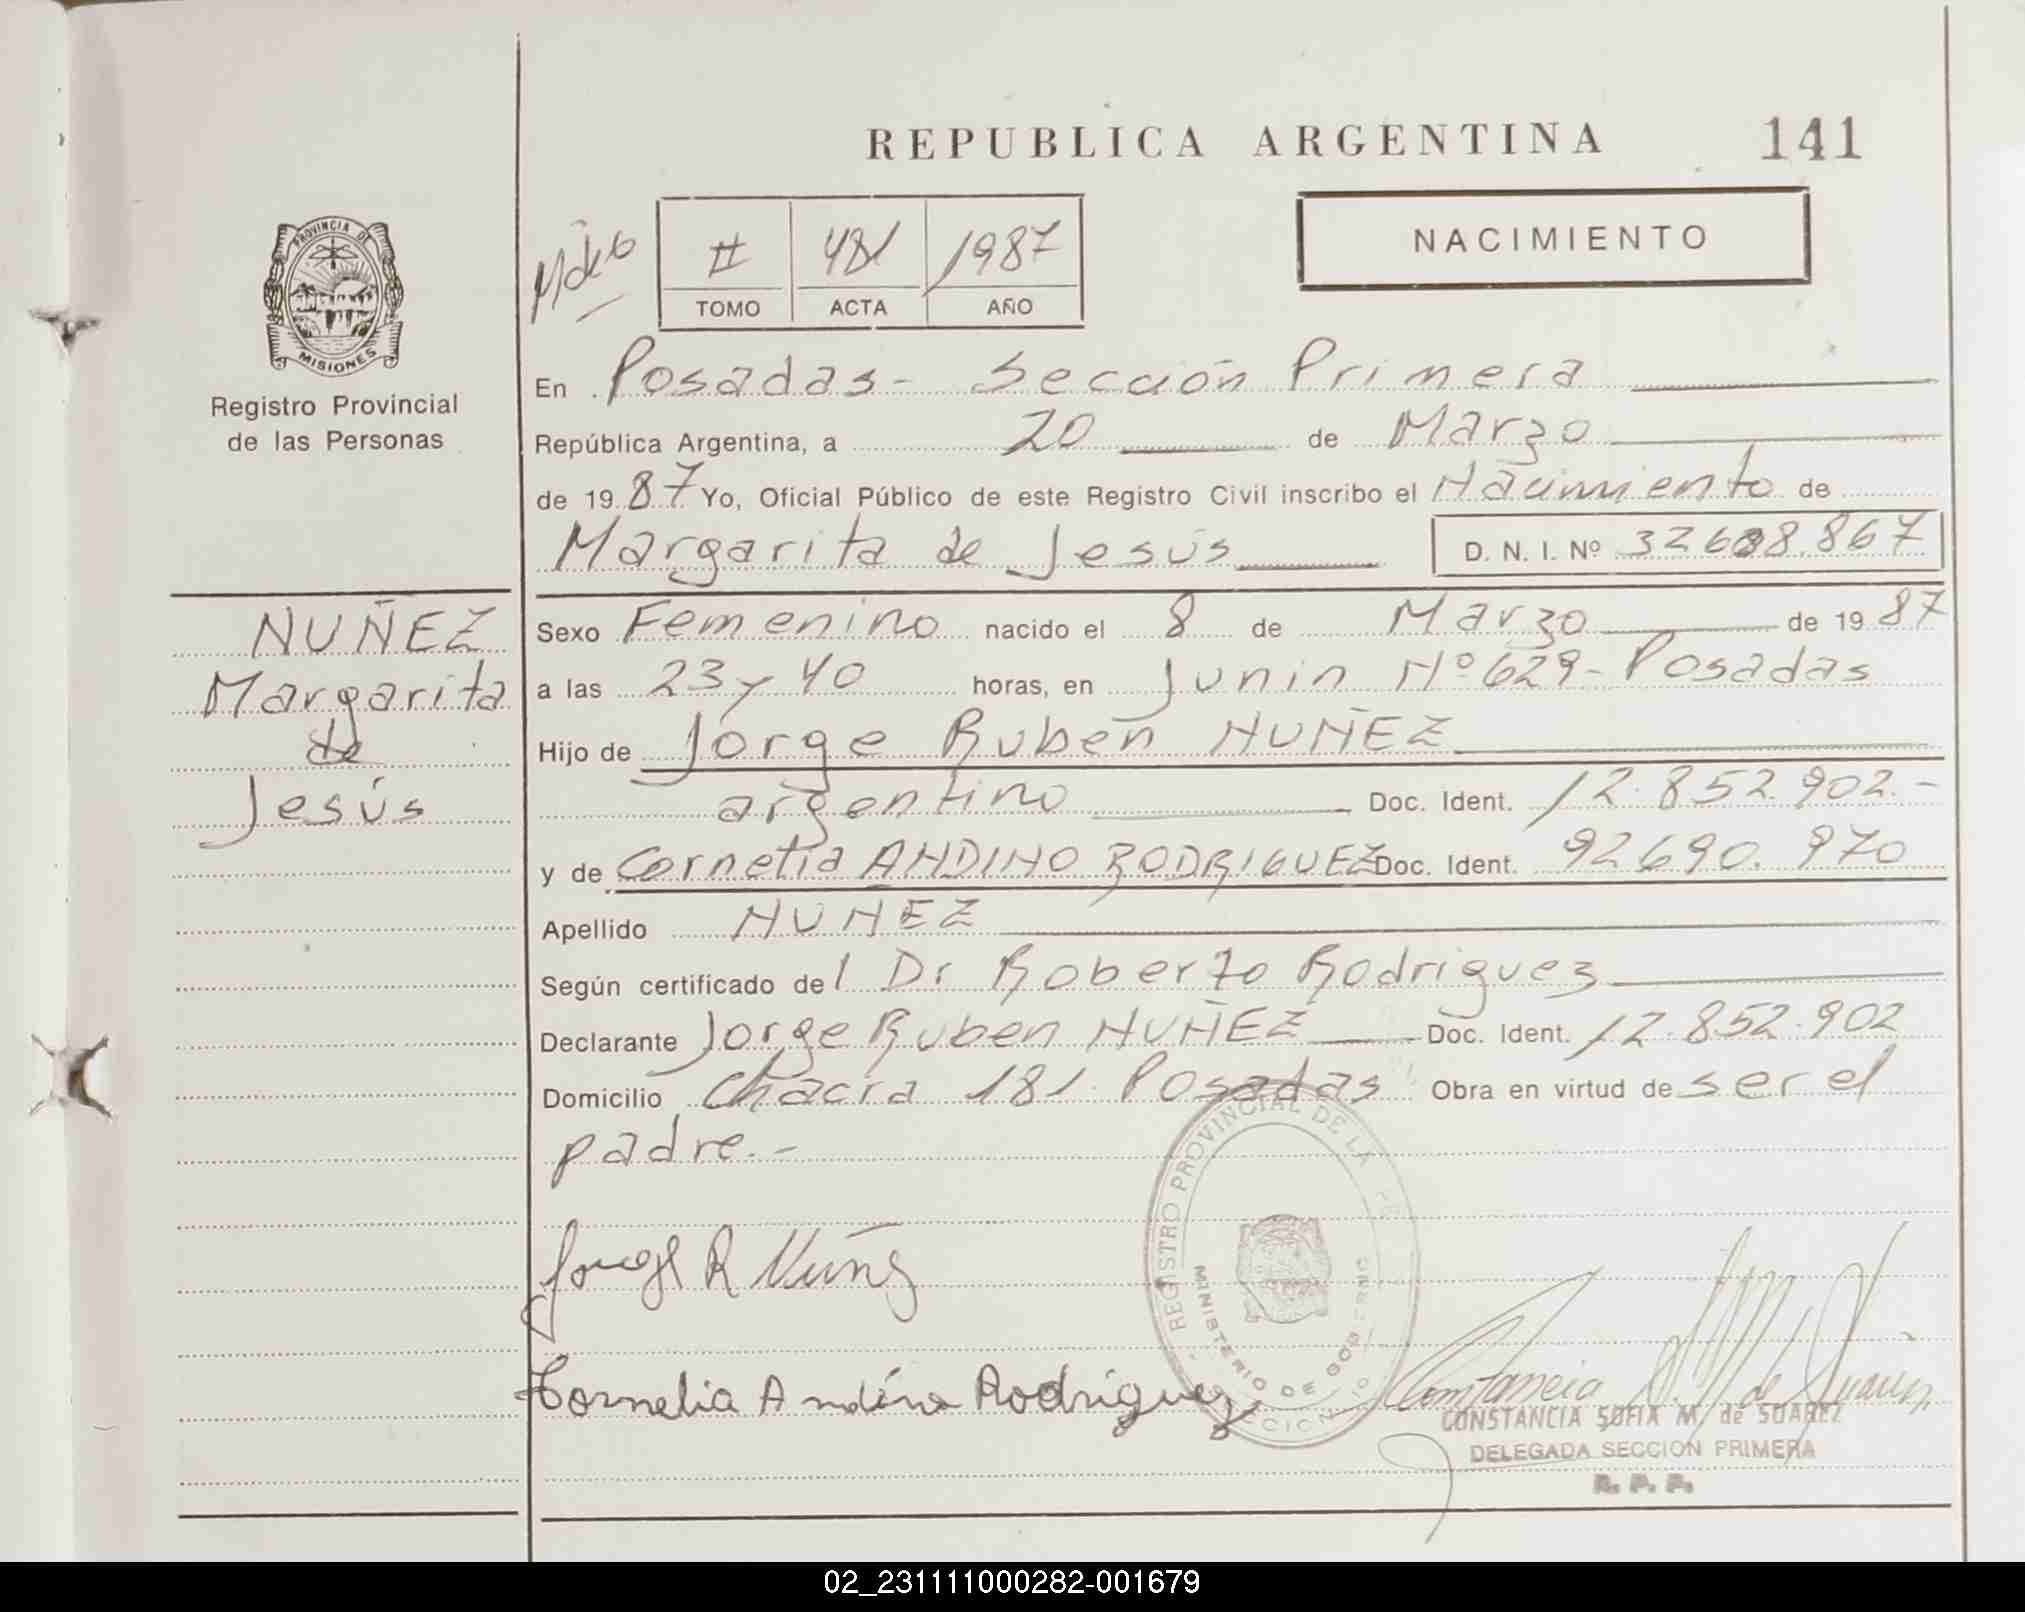 REPUBLICA ARGENTINA 141
II 481 1987
TOMO ACTA AÑO
NACIMIENTO
PROVINCIA DE
MISIONES
Registro Provincial
de las Personas
En Posadas - Sección Primera
República Argentina, a 20 de Marzo
de 19 87 Yo, Oficial Público de este Registro Civil inscribo el Nacimiento de
Margarita de Jesús D. N. I. Nº 32688.867
NUÑEZ
Margarita
de
Jesús
Sexo Femenino nacido el 8 de Marzo de 19 87
a las 23 y 40 horas, en Junin Nº 629 - Posadas
Hijo de Jorge Ruben NUÑEZ
argentino Doc. Ident. 12.852.902.-
y de Cornelia ANDINO RODRIGUEZ Doc. Ident. 92690.970
Apellido NUNEZ
Según certificado del Dr Roberto Rodriguez
Declarante Jorge Ruben NUÑEZ Doc. Ident. 12.852.902
Domicilio Chacra 181 Posadas Obra en virtud de ser el
padre.-
REGISTRO PROVINCIAL DE LA
MINISTERIO DE GOBIERNO
Jorge R Nuñez
Cornelia Andino Rodriguez
Constancia de Suarez
CONSTANCIA SOFIA M. de SUAREZ
DELEGADA SECCION PRIMERA
R. P. P.
02_231111000282-001679